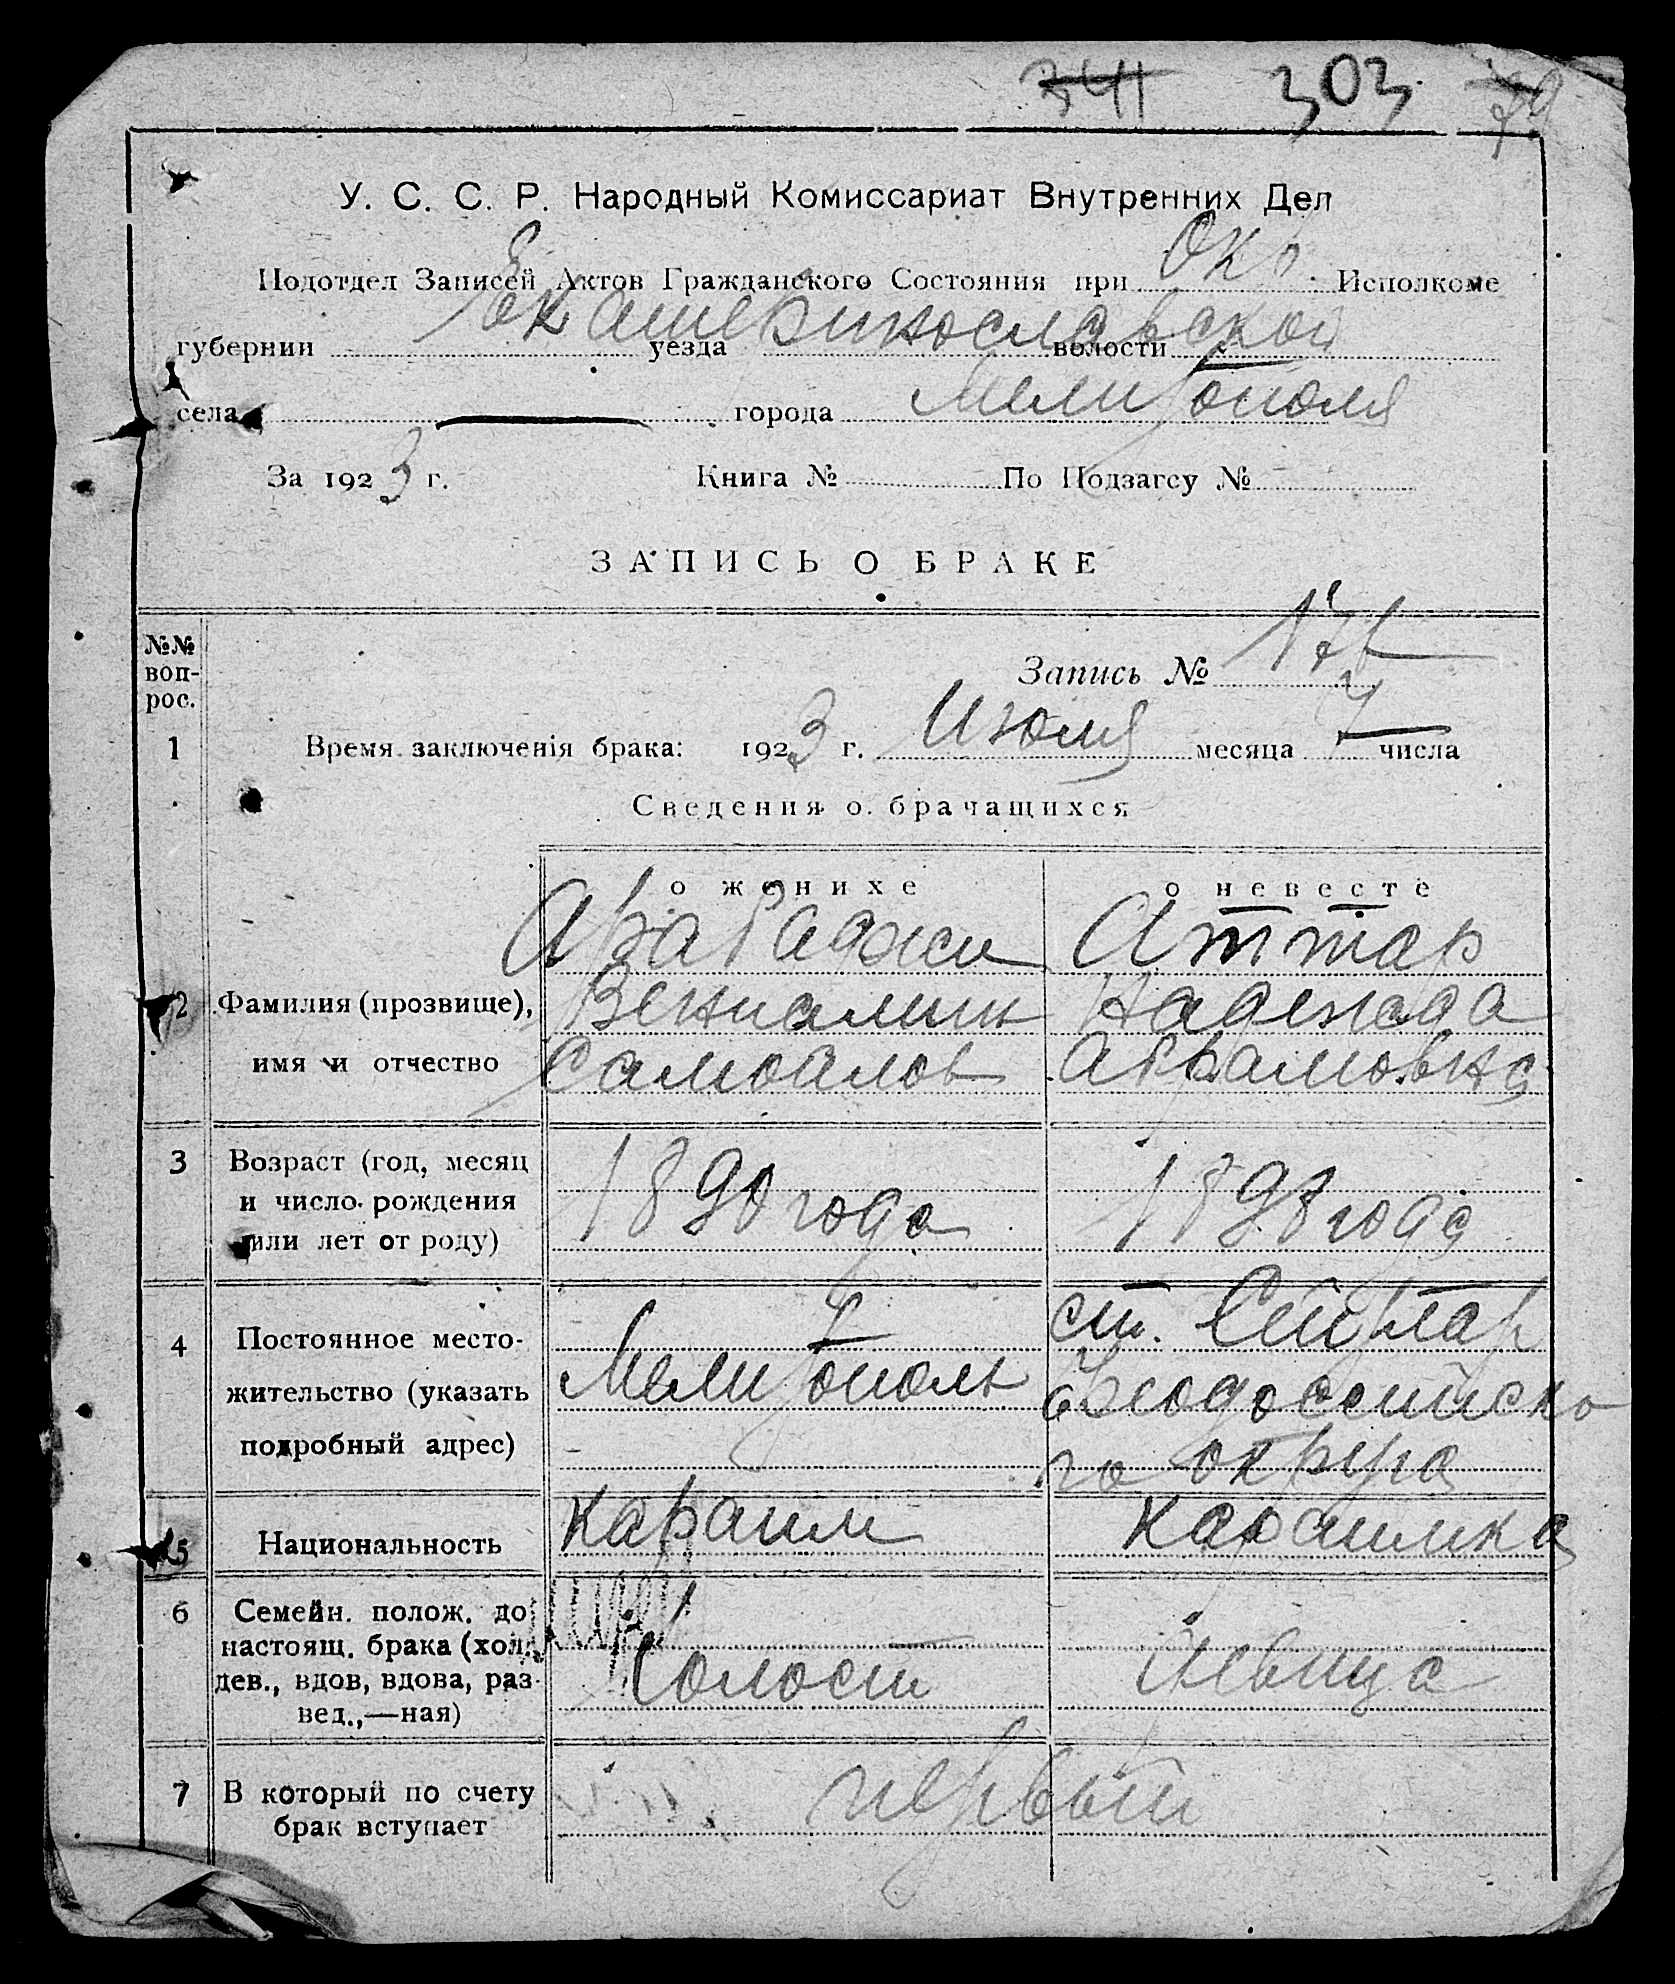 341 303 79
У. С. С. Р. Народный Комиссариат Внутренних Дел
Подотдел Записей Актов Гражданского Состояния при Окр. Исполкоме
губернии Екатеринославской уезда волости
села — города Мелитополя
За 1923 г. Книга № По Подзагсу №
ЗАПИСЬ О БРАКЕ
№№ воп-
рос.
Запись №
1 Время заключенія брака: 1923 г. Июля месяца 7 числа
Сведения о брачащихся
о женихе о невесте
Арабаджи Аттар
2 Фамилия (прозвище), Вениамин Надежда
имя и отчество Самойлов Абрамовна
3 Возраст (год, месяц
и число рождения 1890 года 1898 года
или лет от роду)
ст. Сейтлар
4 Постоянное место-
жительство (указать Мелитополь Феодосийско
подробный адрес) го округа
5 Национальность караим караимка
6 Семейн. полож. до
настоящ. брака (хол.
дев., вдов, вдова, раз- Холост девица
вед.,—ная)
7 В который по счету первый
брак вступает